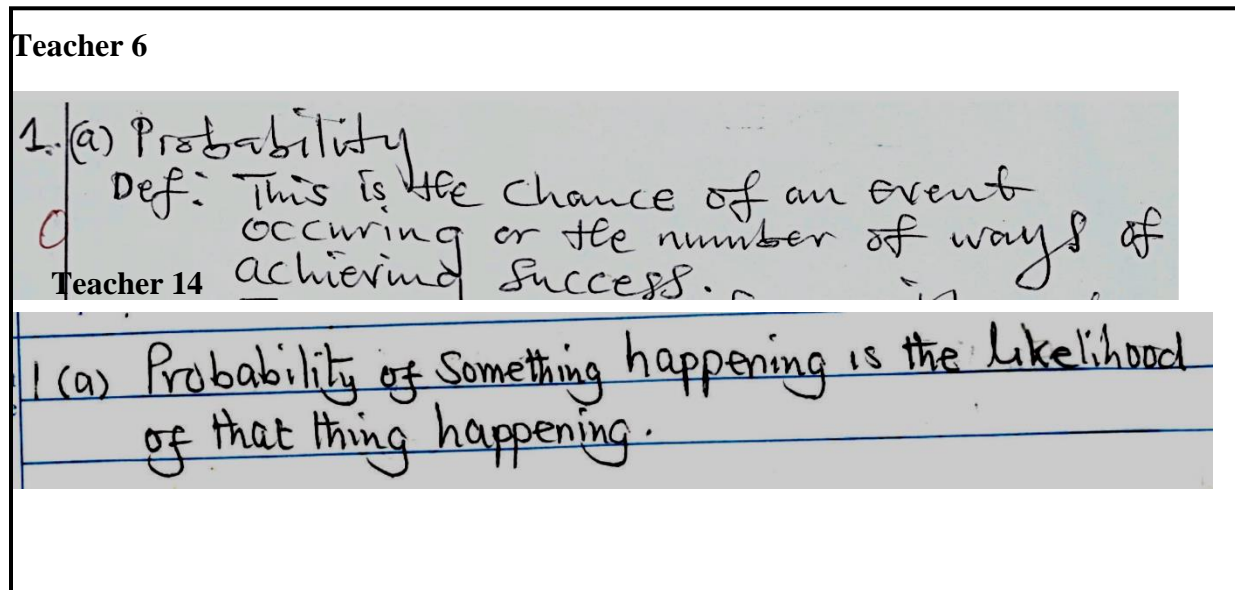 Teacher 6
1. (a) Probability
Def: This is the chance of an event
occuring or the number of ways of
achieving success.
Teacher 14
1 (a) Probability of Something happening is the likelihood
of that thing happening.